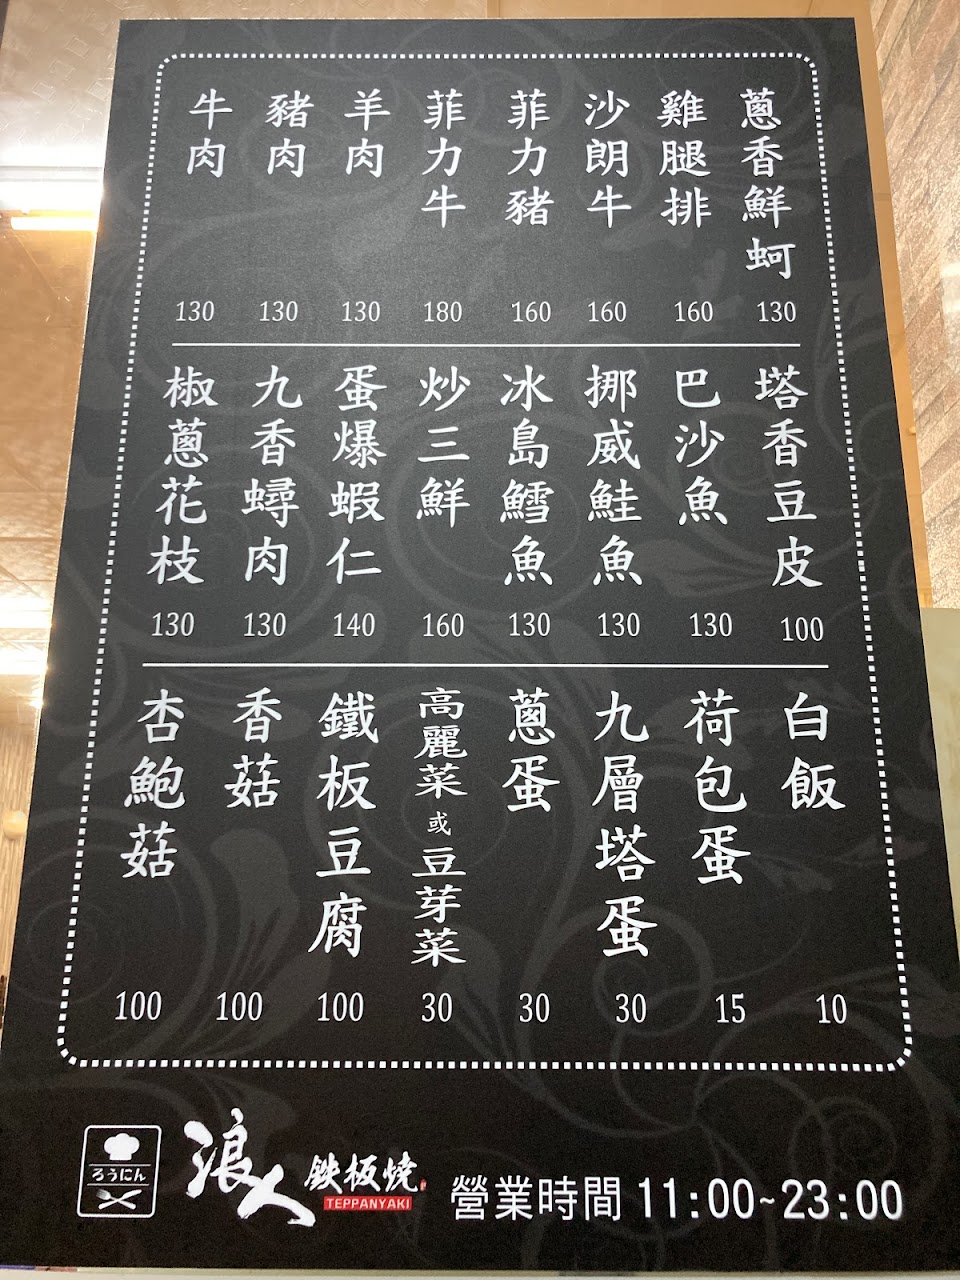 牛肉 130
豬肉 130
羊肉 130
菲力牛 180
菲力豬 160
沙朗牛 160
雞腿排 160
蔥香鮮蚵 130
椒蔥花枝 130
九香蟳肉 130
蛋爆蝦仁 140
炒三鮮 160
冰島鱈魚 130
挪威鮭魚 130
巴沙魚 130
塔香豆皮 100
杏鮑菇 100
香菇 100
鐵板豆腐 100
高麗菜或豆芽菜 30
蔥蛋 30
九層塔蛋 30
荷包蛋 15
白飯 10
ろうにん
浪人
鉄板燒
TEPPANYAKI
營業時間 11:00~23:00